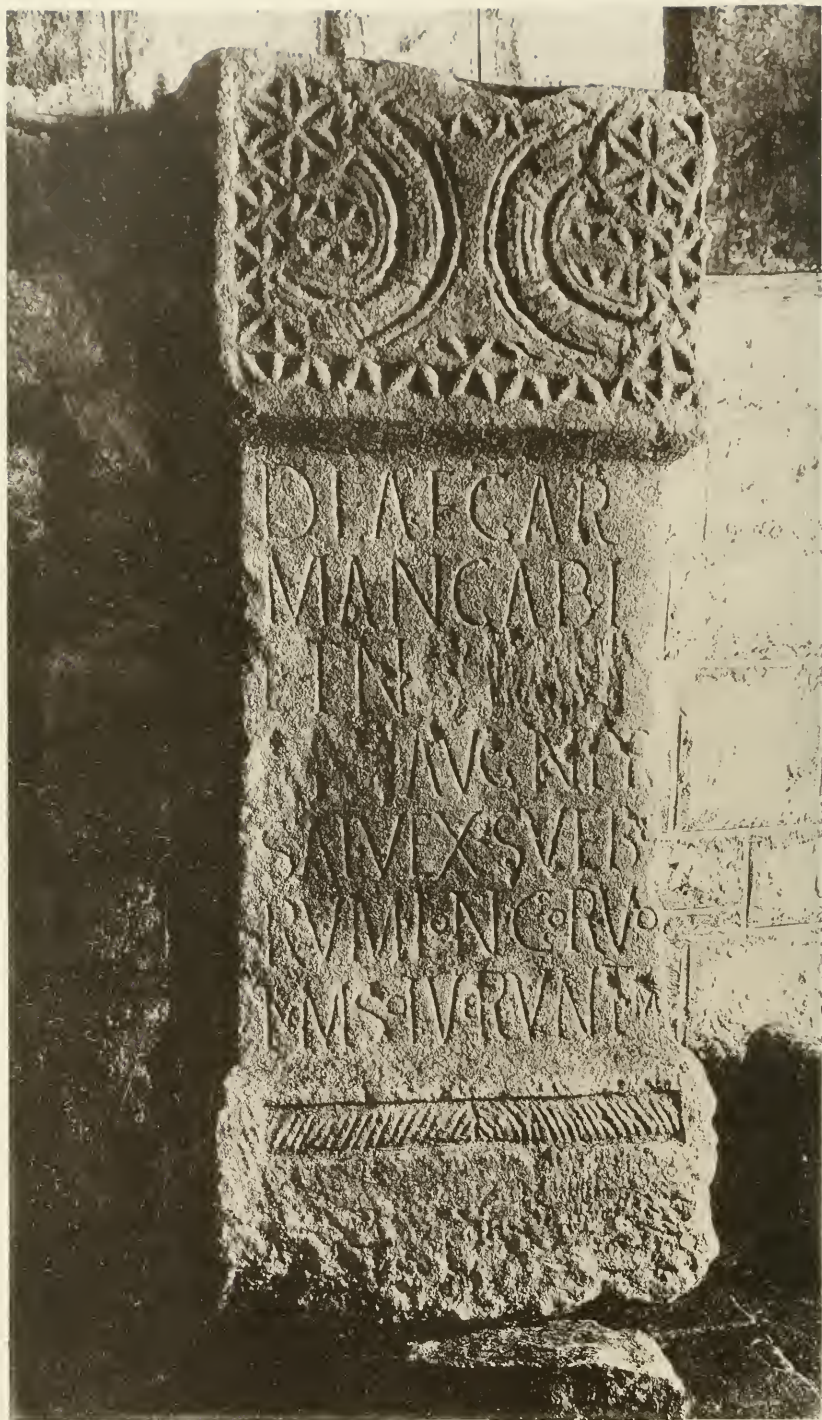 DEAE GAR
MANGABI
ET N
NI AVG N PR
SAL VEX SVEB
RVM LON GOR VO
TVM SOLVERVNT M